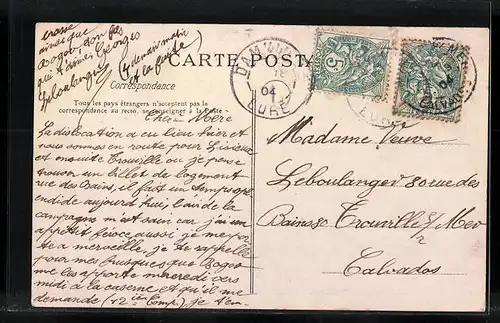 CARTE POSTALE
Correspondance
Tous les pays étrangers n'acceptent pas la
correspondance au recto, se renseigner à la Poste
Chère Mère
La dislocation a eu lieu hier et
nous sommes en route pour Lisieux
et ensuite Trouville ou je pense
trouver un billet de logement
rue des Bains, il fait un temps spl
endide aujourd'hui, l'air de la
campagne m'est sain car j'ai un
appétit féroce aussi je me por
te a merveille, je te rappelle
pour mes frusques que Roger
me les apporte mercredi vers
midi a la caserne et qu'il me
demande (12ie Comp.) je t'em
brasse
ainsi que
Roger, ton fils
qui t'aime Georges
Leboulanger
(demain matin
et la suite)
DAMVILLE
04
EURE
5
04
Madame Veuve
Leboulanger 80 rue des
Bains 80 Trouville s/ Mer
Calvados